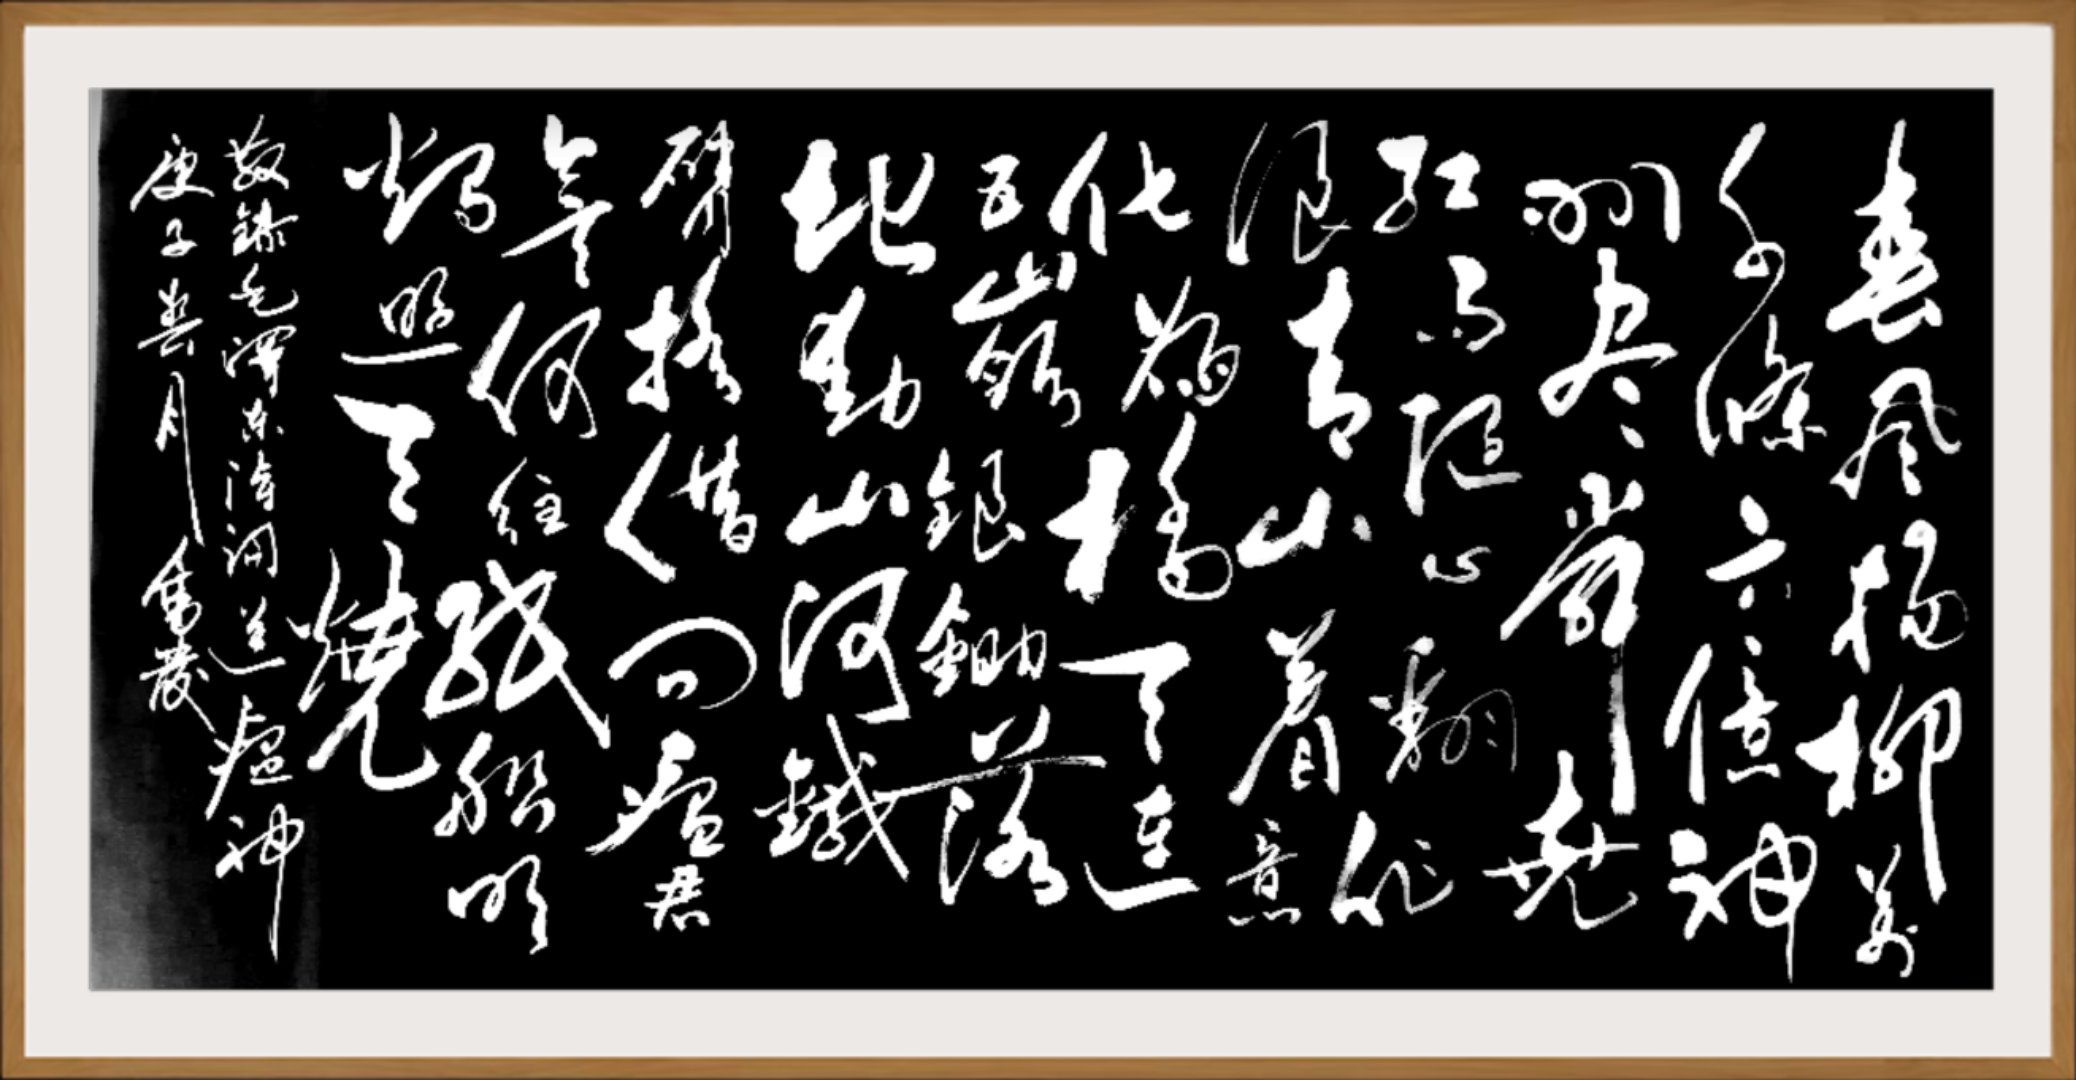 春风楊柳萬
千條六億神
州尽舜尧
红雨随心翻作
浪青山着意
化為橋天連
五嶺銀鋤落
地動山河鐵
臂摇借问瘟君
何往纸船明
燭照天燒
敬錄毛澤東诗词送瘟神
庚子春月